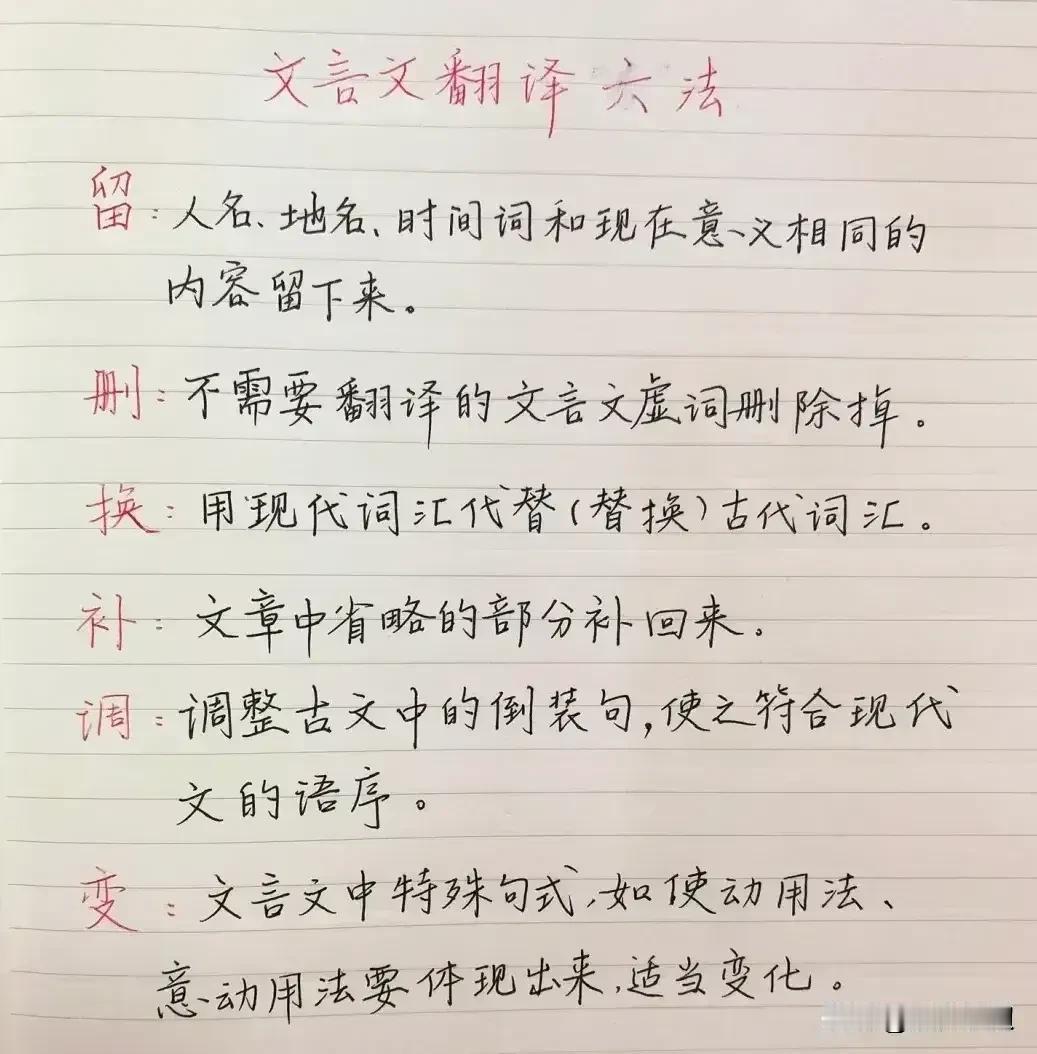 文言文翻译六法
留：人名、地名、时间词和现在意义相同的
内容留下来。
删：不需要翻译的文言文虚词删除掉。
换：用现代词汇代替(替换)古代词汇。
补：文章中省略的部分补回来。
调：调整古文中的倒装句，使之符合现代
文的语序。
变：文言文中特殊句式，如使动用法、
意动用法要体现出来，适当变化。